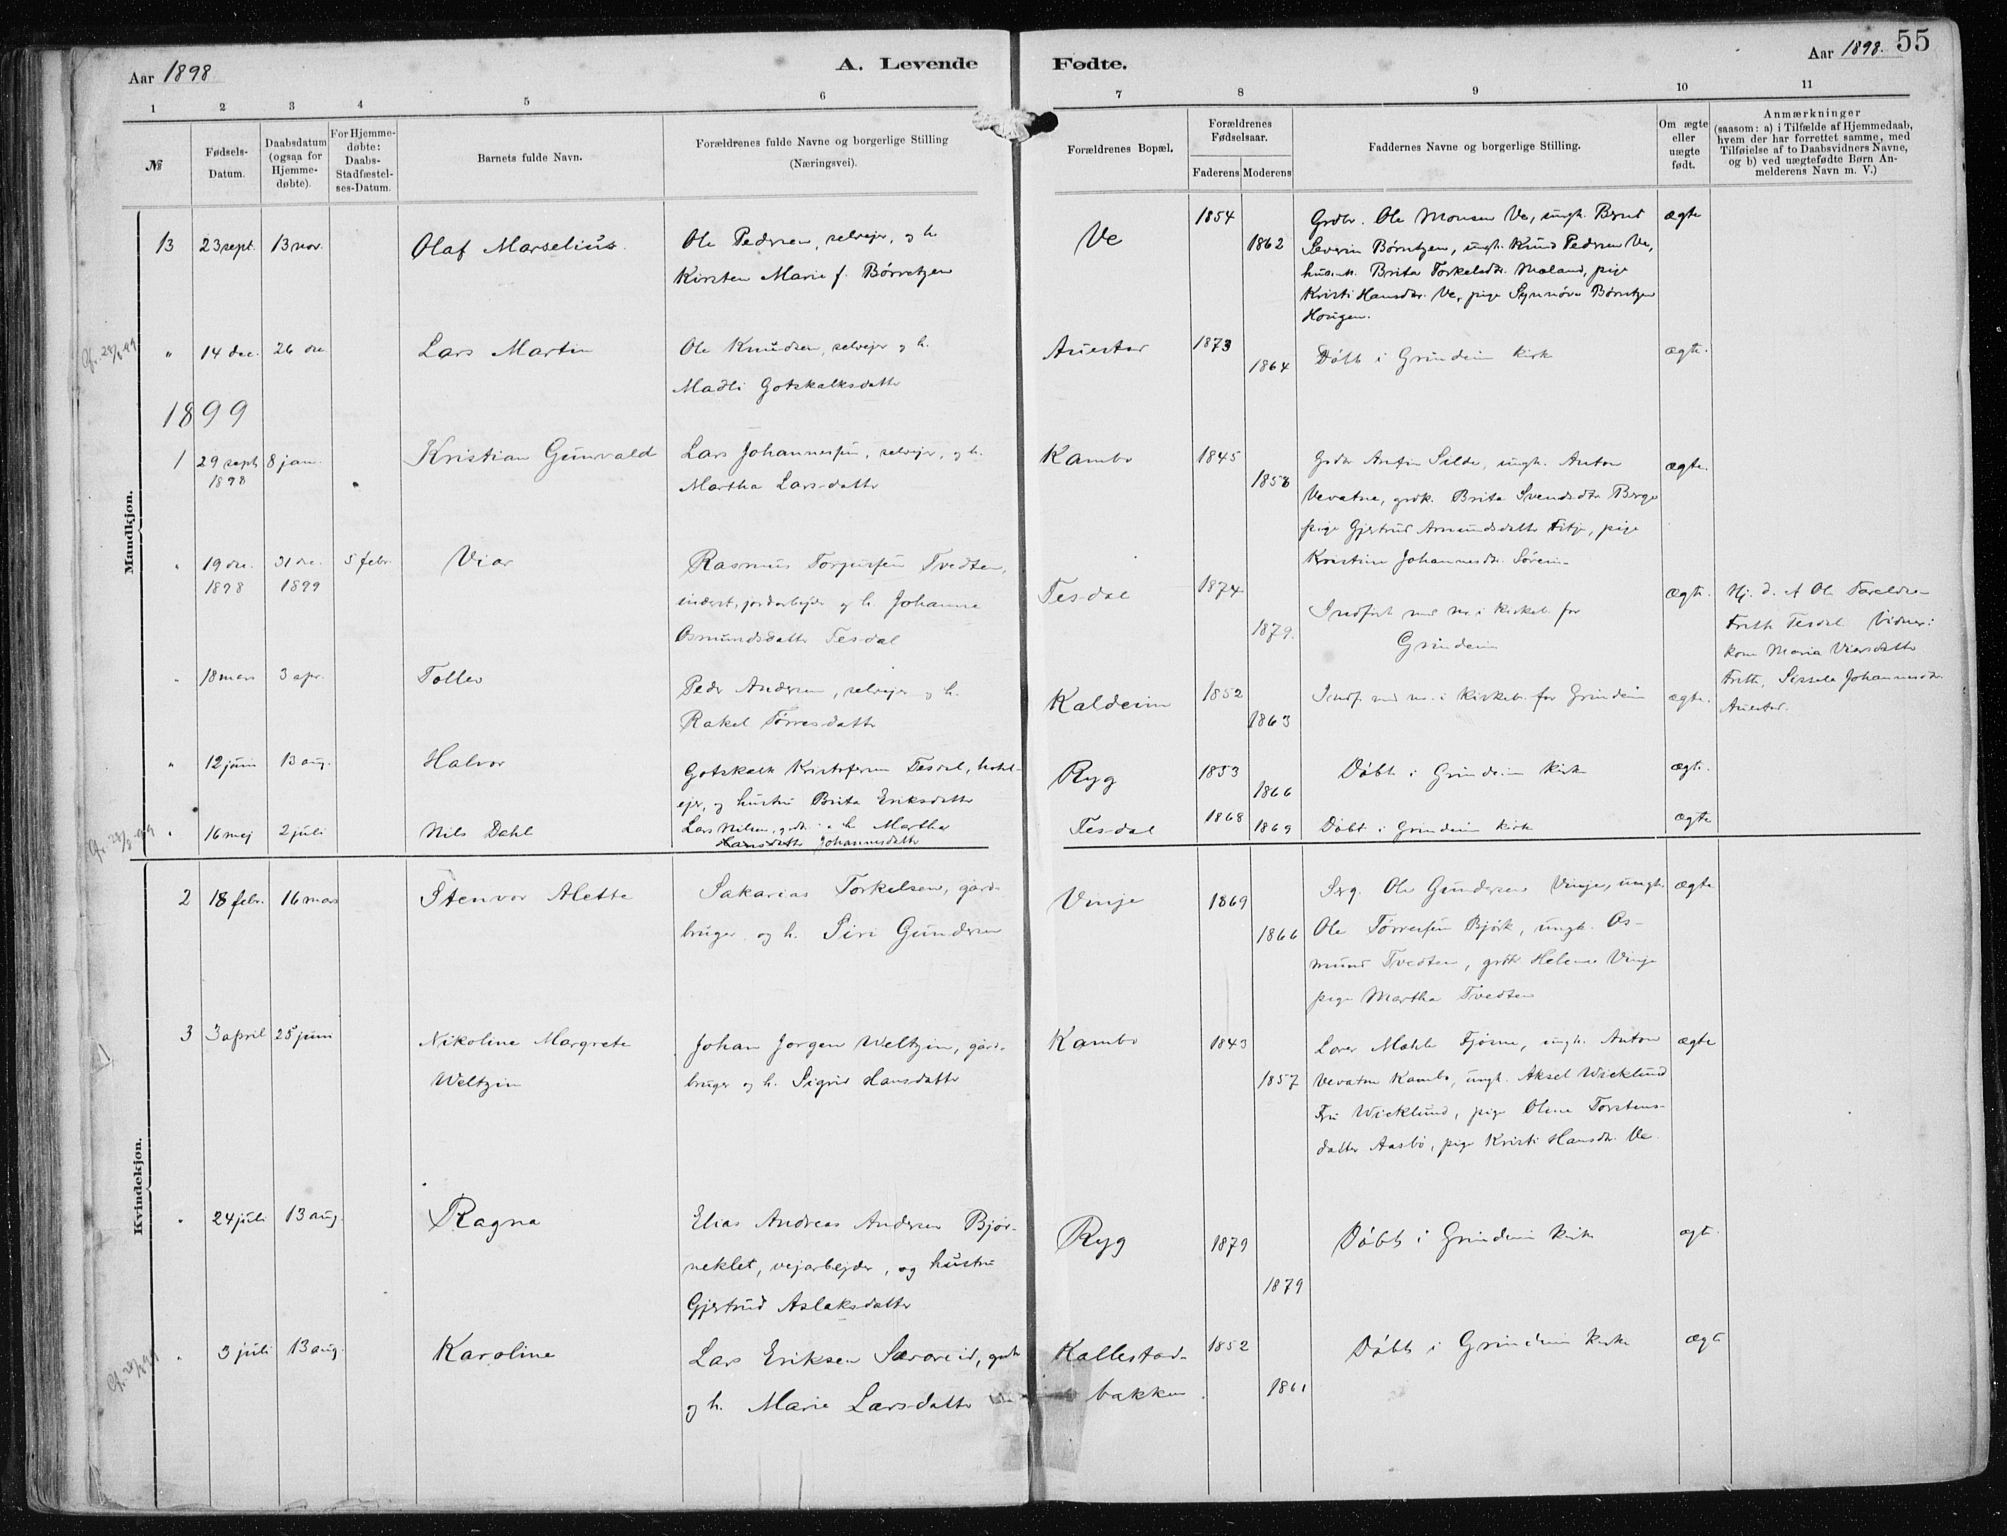 Aar 1898
A. Levende
Fødte.
Aar 1898. 55
1 2 3 4 5 6 7 8 9 10 11
№
Fødsels-
Datum.
Daabsdatum
(ogsaa for
Hjemme-
døbte).
For Hjemme-
døbte:
Daabs-
Stadfæstel-
ses-Datum.
Barnets fulde Navn.
Forældrenes fulde Navne og borgerlige Stilling
(Næringsvei).
Forældrenes Bopæl.
Forældrenes
Fødselsaar.
Faderens Moderens
Faddernes Navne og borgerlige Stilling.
Om ægte
eller
uægte
født.
Anmærkninger
(saasom: a) i Tilfælde af Hjemmedaab,
hvem der har forrettet samme, med
Tilføielse af to Daabsvidners Navne,
og b) ved uægtefødte Børn An-
melderens Navn m. V.)
Mandkjøn.
13 23 sept. 13 nov. Olaf Marselius.
Ole Pedersen, selvejer, og h.
Kirsten Marie f. Børretzen
Ve
1854
1862
Grdbr. Ole Monsen Ve, ungk. Bernt
Severin Børntzen, ungk. Knud Pedersen Ve,
husm. Brita Torkelsdtr. Mæland, pige
Kristi Hansdtr. Ve, pige Synnøve Børntzen
Hougen.
ægte
" 14 dec. 26 dec Lars Martin
Ole Knudsen, selvejer og h.
Madli Gotskalksdatter
Auestad
1873
1864
Døbt i Grindeim kirke
ægte.
1899
1 29 sept 8 jan. Kristian Gunvald
1898
Lars Johannessen, selvejer, og h.
Martha Larsdatter
Kambo
1845
1858
Grdbr Anfin Silde, ungk. Anton
Vevatne, grdk. Brita Svendsdtr Berge
pige Gjertrud Amundsdatter Fitje, pige
Kristine Johannesdtr. Søreim
ægte.
" 19 dec. 31 dec. 5 febr. Viar
1898 1899
Rasmus Torjussen Tvedten,
inderst, jordarbejder og h. Johanna
Osmundsdatter Tesdal
Tesdal
1874
1879.
Indført med nr i kirkeb. for
Grindeim
ægte.
Hj. d. af Ole Tareldsen
Frette Tesdal. Vidner:
kone Maria Viersdatter
Frette, Sissela Johannesdtr.
Auestad.
" 18 mars 3 apr. Tollev
Peder Andersen, selvejer og h.
Rakel Tørresdatter
Kaldeim
1852
1863
Indf. med nr. i kirkeb. for Grindeim
ægte.
" 12 juni 13 aug. Halvor
Gotskalk Kristofersen Tesdal, hotel-
ejer, og hustru Brita Eriksdatter
Ryg
1853
1866
Døbt i Grindeim kirke
ægte.
" 16 maj 2 juli Nils Dahl
Lars Nilsen, grdb. og h. Martha
Hansdatter Johannesdatter
Tesdal
1868 1869
Døbt i Grindeim kirke
ægte
Kvindekjøn.
2 18 febr. 16 mars Stenvor Alette
Sakarias Torkelsen, gard-
bruger og h. Siri Gundersen
Vinje
1869
1866
Serg. Ole Gundersen Vinje, ungk.
Ole Tørressen Bjørk, ungk. Os-
mund Tvedten, grdk Helene Vinje
pige Martha Tvedten
ægte
3 3 april 25 juni Nikoline Margrete
Weltzin
Johan Jørgen Weltzin, gård-
bruger og h. Sigrid Hansdatter
Kambo
1843
1857
Lærer Fjøsne, ungk. Anton
Vevatne Kambo, ungk. Aksel Wicklund
Fru Wicklund, pige Oline Torstens-
datter Aasbø, pige Kristi Hansdtr. Ve.
ægte
" 24 juli 13 aug. Ragna
Elias Andreas Andersen Bjør-
neklet, vejarbejder, og hustru
Gjertrud Aslaksdatter
Ryg
1879
1879
Døbt i Grindeim kirke
ægte.
" 3 juli 13 aug. Karoline
Lars Eriksen Særøreid, grdb
og h. Marie Larsdatter
Kallestad-
bakken.
1852
1861
Døbt i Grindeim kirke
ægte